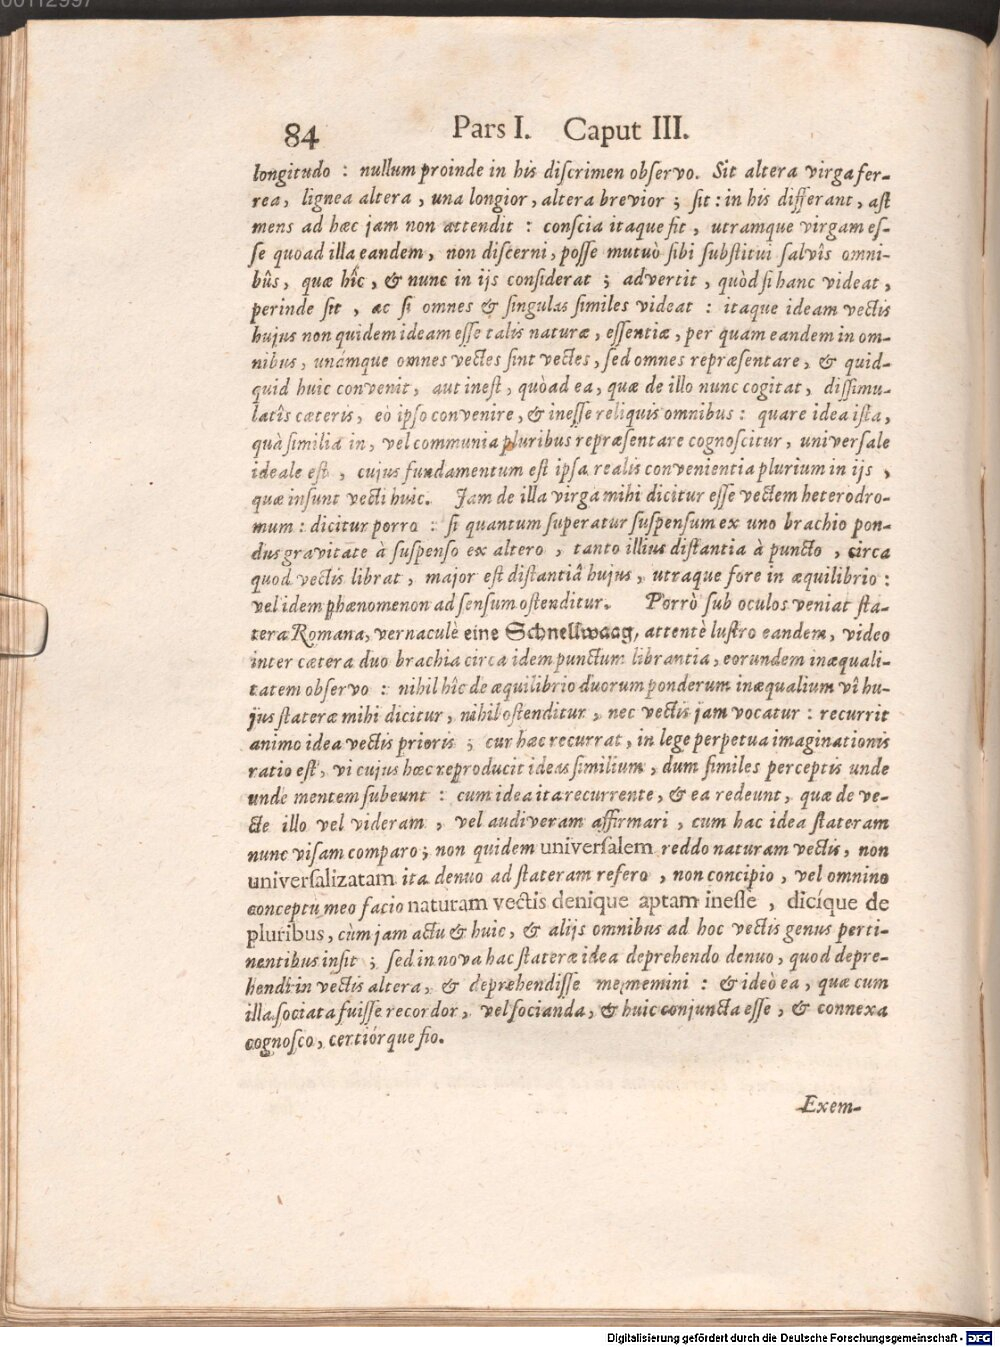 00112997
84
Pars I. Caput III.
longitudo : nullum proinde in his discrimen observo. Sit altera virga fer-
rea, lignea altera, una longior, altera brevior ; sit : in his differant, ast
mens ad hæc jam non attendit : conscia itaque fit, utramque virgam es-
se quoad illa eandem, non discerni, posse mutuò sibi substitui salvîs omni-
bûs, quæ hîc, & nunc in ijs considerat ; advertit, quòd si hanc videat,
perinde sit, ac si omnes & singulas similes videat : itaque ideam vectis
hujus non quidem ideam esse talis naturæ, essentiæ, per quam eandem in om-
nibus, unámque omnes vectes sint vectes, sed omnes repræsentare, & quid-
quid huic convenit, aut inest, quòad ea, quæ de illo nunc cogitat, dissimu-
latîs cæteris, eò ipso convenire, & inesse reliquis omnibus : quare idea ista,
quà similia in, vel communia pluribus repræsentare cognoscitur, universale
ideale est, cujus fundamentum est ipsa realis convenientia plurium in ijs,
quæ insunt vecti huic. Jam de illa virga mihi dicitur esse vectem heterodro-
mum : dicitur porro : si quantum superatur suspensum ex uno brachio pon-
dus gravitate à suspenso ex altero, tanto illius distantia à puncto, circa
quod vectis librat, major est distantiâ hujus, utraque fore in æquilibrio :
vel idem phænomenon ad sensum ostenditur. Porrò sub oculos veniat sta-
tera Romana, vernaculè eine Schnellwaag, attentè lustro eandem, video
inter cætera duo brachia circa idem punctum librantia, eorundem inæquali-
tatem observo : nihil hîc de æquilibrio duorum ponderum inæqualium vî hu-
jus stateræ mihi dicitur, nihil ostenditur, nec vectis jam vocatur : recurrit
animo idea vectis prioris ; cur hæc recurrat, in lege perpetua imaginationis
ratio est, vi cujus hæc reproducit ideas similium, dum similes perceptis unde
unde mentem subeunt : cum idea ita recurrente, & ea redeunt, quæ de ve-
cte illo vel videram, vel audiveram affirmari, cum hac idea stateram
nunc visam comparo ; non quidem universalem reddo naturam vectis, non
universalizatam ita denuo ad stateram refero, non concipio, vel omnino
conceptu meo facio naturam vectis denique aptam inesse, dicíque de
pluribus, cùm jam actu & huic, & alijs omnibus ad hoc vectis genus perti-
nentibus insit ; sed in nova hac stateræ idea deprehendo denuo, quod depre-
hendi in vectis altera, & deprehendisse me memini : & ideò ea, quæ cum
illa sociata fuisse recordor, vel socianda, & huic conjuncta esse, & connexa
cognosco, certiórque fio.
Exem-
Digitalisierung gefördert durch die Deutsche Forschungsgemeinschaft - DFG